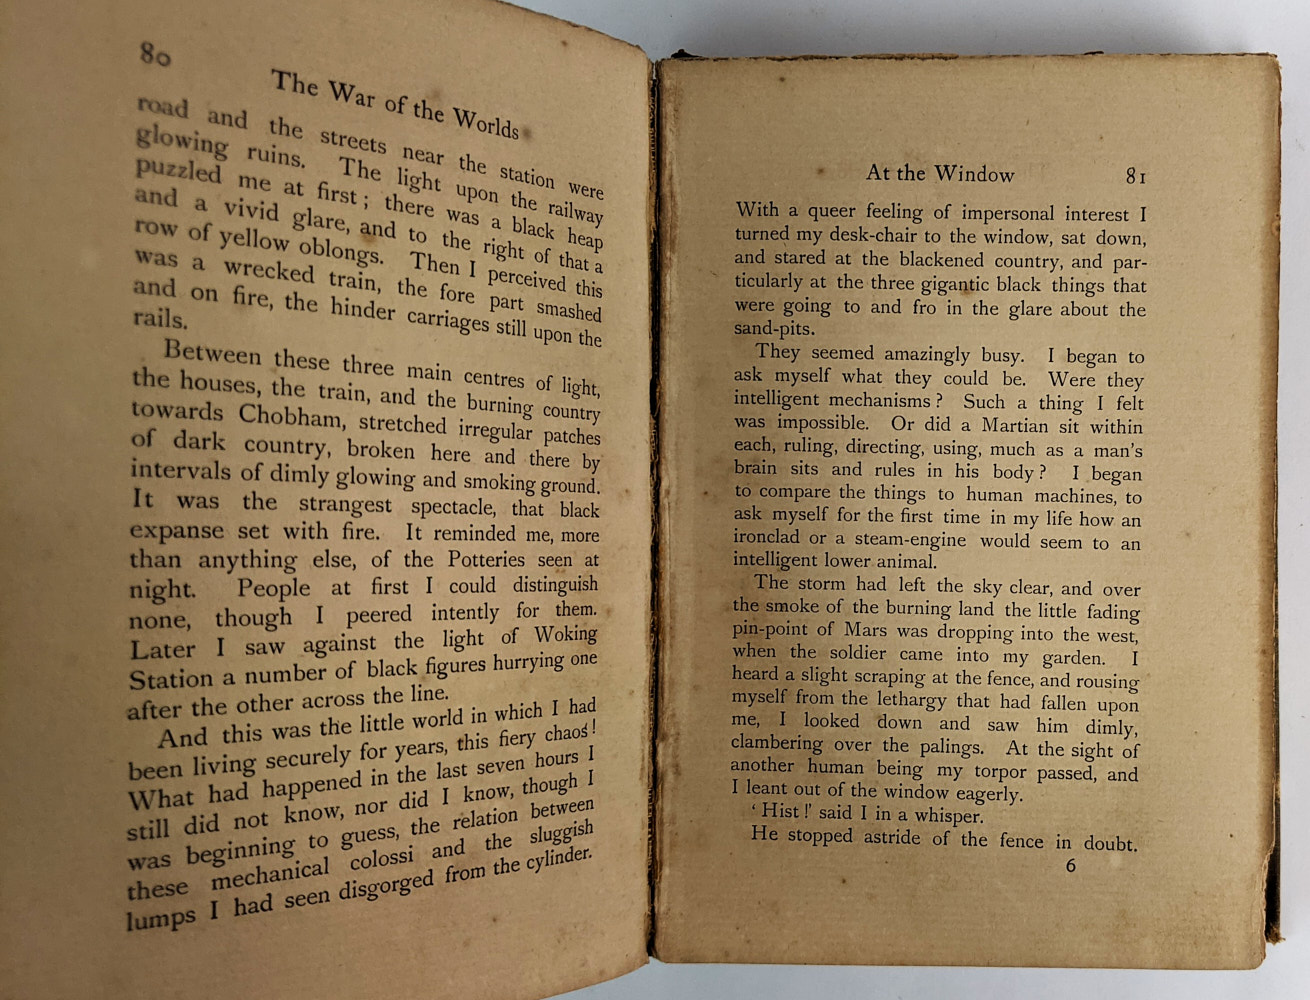 80
The War of the Worlds
road and the streets near the station were
glowing ruins. The light upon the railway
puzzled me at first; there was a black heap
and a vivid glare, and to the right of that a
row of yellow oblongs. Then I perceived this
was a wrecked train, the fore part smashed
and on fire, the hinder carriages still upon the
rails.
Between these three main centres of light,
the houses, the train, and the burning country
towards Chobham, stretched irregular patches
of dark country, broken here and there by
intervals of dimly glowing and smoking ground.
It was the strangest spectacle, that black
expanse set with fire. It reminded me, more
than anything else, of the Potteries seen at
night. People at first I could distinguish
none, though I peered intently for them.
Later I saw against the light of Woking
Station a number of black figures hurrying one
after the other across the line.
And this was the little world in which I had
been living securely for years, this fiery chaos!
What had happened in the last seven hours I
still did not know, nor did I know, though I
was beginning to guess, the relation between
these mechanical colossi and the sluggish
lumps I had seen disgorged from the cylinder.
At the Window 81
With a queer feeling of impersonal interest I
turned my desk-chair to the window, sat down,
and stared at the blackened country, and par-
ticularly at the three gigantic black things that
were going to and fro in the glare about the
sand-pits.
They seemed amazingly busy. I began to
ask myself what they could be. Were they
intelligent mechanisms? Such a thing I felt
was impossible. Or did a Martian sit within
each, ruling, directing, using, much as a man's
brain sits and rules in his body? I began
to compare the things to human machines, to
ask myself for the first time in my life how an
ironclad or a steam-engine would seem to an
intelligent lower animal.
The storm had left the sky clear, and over
the smoke of the burning land the little fading
pin-point of Mars was dropping into the west,
when the soldier came into my garden. I
heard a slight scraping at the fence, and rousing
myself from the lethargy that had fallen upon
me, I looked down and saw him dimly,
clambering over the palings. At the sight of
another human being my torpor passed, and
I leant out of the window eagerly.
'Hist!' said I in a whisper.
He stopped astride of the fence in doubt.
6